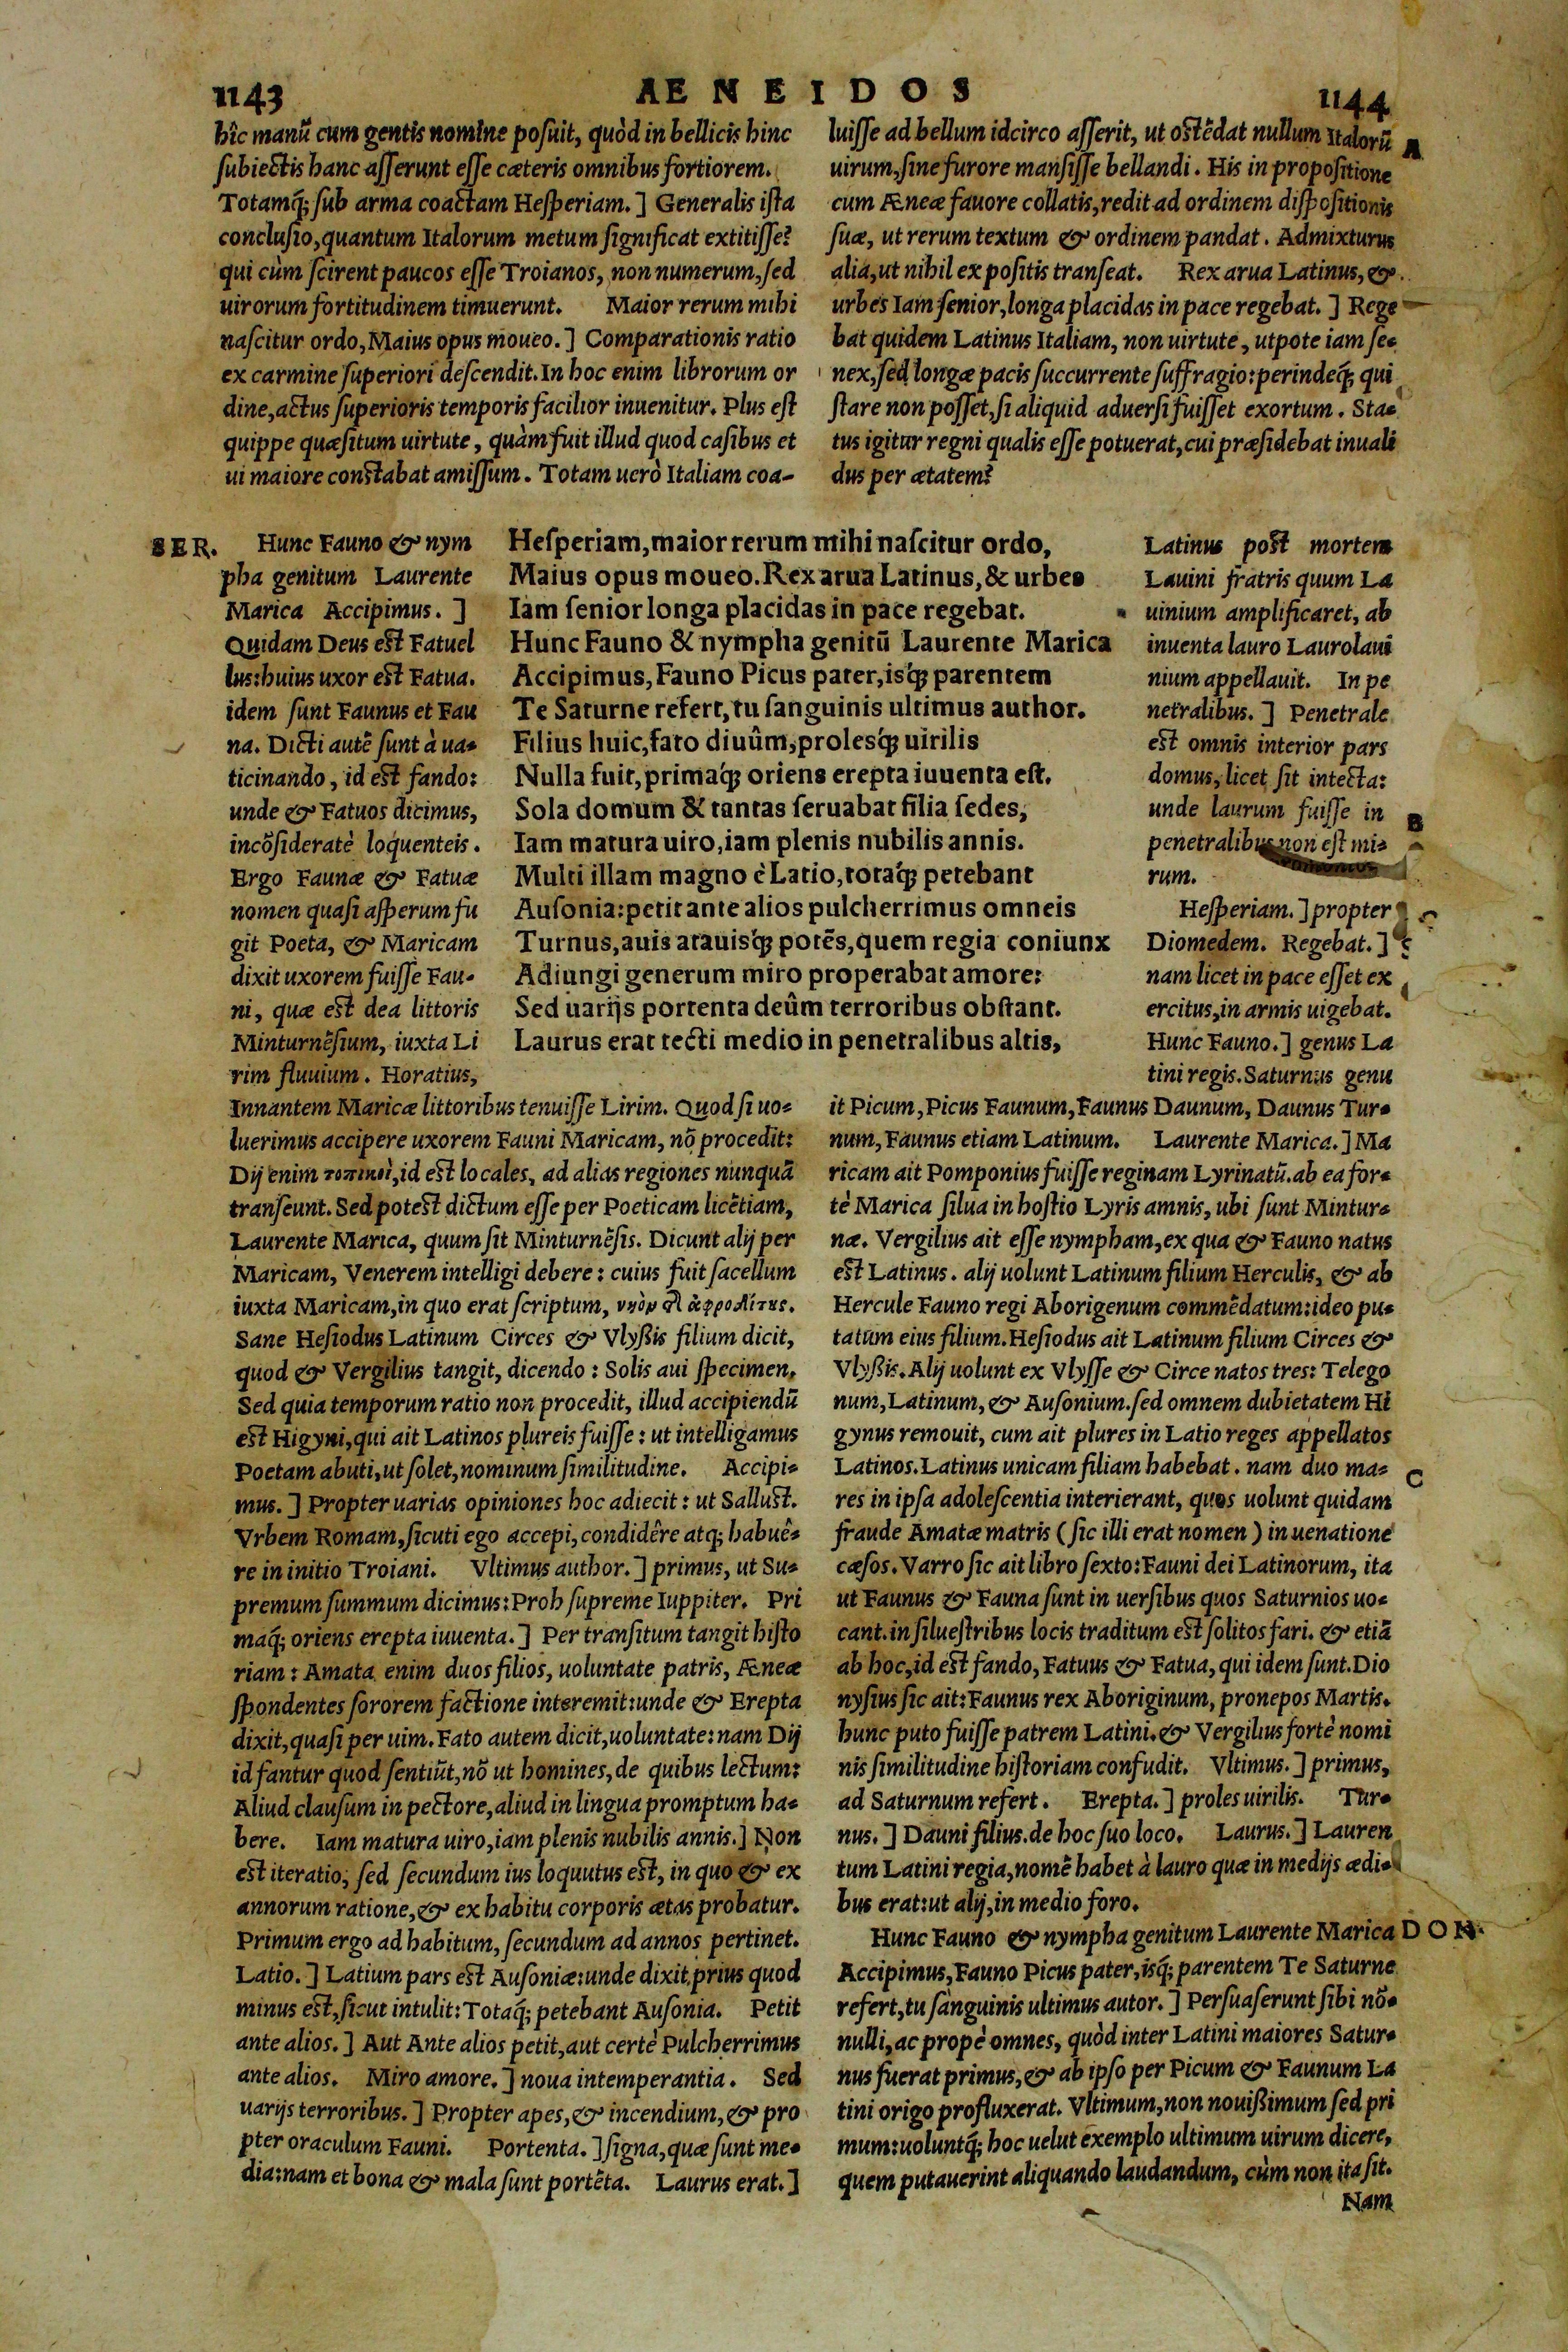 1143
AENEIDOS
1144
hîc manũ cum gentis nomine posuit, quòd in bellicis hinc
subiectis hanc asserunt esse cæteris omnibus fortiorem.
Totamq́; sub arma coactam Hesperiam.] Generalis ista
conclusio, quantum Italorum metum significat extitisse?
qui cùm scirent paucos esse Troianos, non numerum, sed
uirorum fortitudinem timuerunt. Maior rerum mihi
nascitur ordo, Maius opus moueo.] Comparationis ratio
ex carmine superiori descendit. In hoc enim librorum or
dine, actus superioris temporis facilior inuenitur. Plus est
quippe quæsitum uirtute, quàm fuit illud quod casibus et
ui maiore constabat amissum. Totam uerò Italiam coa-
luisse ad bellum idcirco asserit, ut ostẽdat nullum Italorũ
uirum, sine furore mansisse bellandi. His in propositione
cum Æneæ fauore collatis, redit ad ordinem dispositionis
suæ, ut rerum textum & ordinem pandat. Admixturus
alia, ut nihil ex positis transeat. Rex arua Latinus, &
urbes Iam senior, longa placidas in pace regebat.] Rege
bat quidem Latinus Italiam, non uirtute, utpote iam se-
nex, sed longæ pacis succurrente suffragio: perindeq́; qui
stare non posset, si aliquid aduersi fuisset exortum. Sta-
tus igitur regni qualis esse potuerat, cui præsidebat inuali
dus per ætatem?
A
SER.
Hunc Fauno & nym
pha genitum Laurente
Marica Accipimus.]
Quidam Deus est Fatuel
lus: huius uxor est Fatua.
idem sunt Faunus et Fau
na. Dicti autẽ sunt à ua-
ticinando, id est fando:
unde & Fatuos dicimus,
incõsideratè loquenteis.
Ergo Faunæ & Fatuæ
nomen quasi asperum fu
git Poeta, & Maricam
dixit uxorem fuisse Fau-
ni, quæ est dea littoris
Minturnẽsium, iuxta Li
rim fluuium. Horatius,
Hesperiam, maior rerum mihi nascitur ordo,
Maius opus moueo. Rex arua Latinus, & urbes
Iam senior longa placidas in pace regebat.
Hunc Fauno & nympha genitũ Laurente Marica
Accipimus, Fauno Picus pater, isq́; parentem
Te Saturne refert, tu sanguinis ultimus author.
Filius huic, fato diuûm, prolesq́; uirilis
Nulla fuit, primaq́; oriens erepta iuuenta est.
Sola domum & tantas seruabat filia sedes,
Iam matura uiro, iam plenis nubilis annis.
Multi illam magno è Latio, totaq́; petebant
Ausonia: petit ante alios pulcherrimus omneis
Turnus, auis atauisq́; potẽs, quem regia coniunx
Adiungi generum miro properabat amore:
Sed uarijs portenta deûm terroribus obstant.
Laurus erat tecti medio in penetralibus altis,
Latinus post mortem
Lauini fratris quum La
uinium amplificaret, ab
inuenta lauro Laurolaui
nium appellauit. In pe
netralibus.] Penetrale
est omnis interior pars
domus, licet sit intecta:
unde laurum fuisse in
penetralibus non est mi-
rum.
Hesperiam.] propter
Diomedem. Regebat.]
nam licet in pace esset ex
ercitus, in armis uigebat.
Hunc Fauno.] genus La
tini regis. Saturnus genu
B
Innantem Maricæ littoribus tenuisse Lirim. Quod si uo-
luerimus accipere uxorem Fauni Maricam, nõ procedit:
Dij enim τοπικοὶ, id est locales, ad alias regiones nunquã
transeunt. Sed potest dictum esse per Poeticam licẽtiam,
Laurente Marica, quum sit Minturnẽsis. Dicunt alij per
Maricam, Venerem intelligi debere: cuius fuit sacellum
iuxta Maricam, in quo erat scriptum,
Sane Hesiodus Latinum Circes & Vlyßis filium dicit,
quod & Vergilius tangit, dicendo: Solis aui specimen.
Sed quia temporum ratio non procedit, illud accipiendũ
est Higyni, qui ait Latinos plureis fuisse: ut intelligamus
Poetam abuti, ut solet, nominum similitudine. Accipi-
mus.] Propter uarias opiniones hoc adiecit: ut Sallust.
Vrbem Romam, sicuti ego accepi, condidêre atq; habuê-
re in initio Troiani. Vltimus author.] primus, ut Su-
premum summum dicimus: Proh supreme Iuppiter. Pri
maq́; oriens erepta iuuenta.] Per transitum tangit histo
riam: Amata enim duos filios, uoluntate patris, Æneæ
spondentes sororem factione interemit: unde & Erepta
dixit, quasi per uim. Fato autem dicit, uoluntate: nam Dij
id fantur quod sentiũt, nõ ut homines, de quibus lectum:
Aliud clausum in pectore, aliud in lingua promptum ha-
bere. Iam matura uiro, iam plenis nubilis annis.] Non
est iteratio, sed secundum ius loquutus est, in quo & ex
annorum ratione, & ex habitu corporis ætas probatur.
Primum ergo ad habitum, secundum ad annos pertinet.
Latio.] Latium pars est Ausoniæ: unde dixit prius quod
minus est, sicut intulit: Totaq́; petebant Ausonia. Petit
ante alios.] Aut Ante alios petit, aut certè Pulcherrimus
ante alios. Miro amore.] noua intemperantia. Sed
uarijs terroribus.] Propter apes, & incendium, & pro
pter oraculum Fauni. Portenta.] signa, quæ sunt me-
dia: nam et bona & mala sunt portẽta. Laurus erat.]
it Picum, Picus Faunum, Faunus Daunum, Daunus Tur-
num, Faunus etiam Latinum. Laurente Marica.] Ma
ricam ait Pomponius fuisse reginam Lyrinatũ. ab ea for-
tè Marica silua in hostio Lyris amnis, ubi sunt Mintur-
næ. Vergilius ait esse nympham, ex qua & Fauno natus
est Latinus. alij uolunt Latinum filium Herculis, & ab
Hercule Fauno regi Aborigenum commẽdatum: ideo pu-
tatum eius filium. Hesiodus ait Latinum filium Circes &
Vlyßis. Alij uolunt ex Vlysse & Circe natos tres: Telego
num, Latinum, & Ausonium. sed omnem dubietatem Hi
gynus remouit, cum ait plures in Latio reges appellatos
Latinos. Latinus unicam filiam habebat. nam duo ma-
res in ipsa adolescentia interierant, quos uolunt quidam
fraude Amatæ matris (sic illi erat nomen) in uenatione
cæsos. Varro sic ait libro sexto: Fauni dei Latinorum, ita
ut Faunus & Fauna sunt in uersibus quos Saturnios uo-
cant. in siluestribus locis traditum est solitos fari. & etiã
ab hoc, id est fando, Fatuus & Fatua, qui idem sunt. Dio
nysius sic ait: Faunus rex Aboriginum, pronepos Martis.
hunc puto fuisse patrem Latini. & Vergilius fortè nomi
nis similitudine historiam confudit. Vltimus.] primus,
ad Saturnum refert. Erepta.] proles uirilis. Tur-
nus.] Dauni filius. de hoc suo loco. Laurus.] Lauren
tum Latini regia, nomẽ habet à lauro quæ in medijs ædi-
bus erat: ut alij, in medio foro.
C
Hunc Fauno & nympha genitum Laurente Marica DON.
Accipimus, Fauno Picus pater, isq́; parentem Te Saturne
refert, tu sanguinis ultimus autor.] Persuaserunt sibi nõ-
nulli, ac propè omnes, quòd inter Latini maiores Satur-
nus fuerat primus, & ab ipso per Picum & Faunum La
tini origo profluxerat. Vltimum, non nouißimum sed pri
mum: uoluntq́; hoc uelut exemplo ultimum uirum dicere,
quem putauerint aliquando laudandum, cùm non ita sit.
Nam